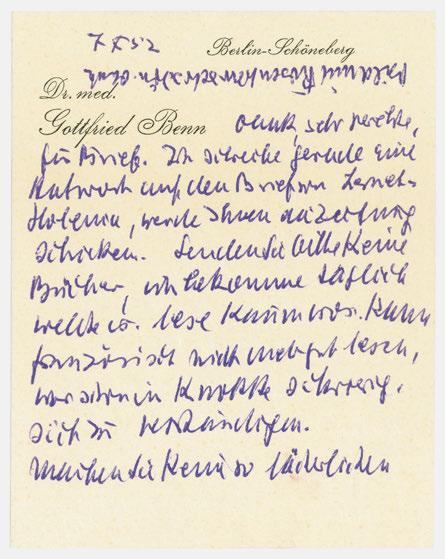 7 X 52 Berlin-Schöneberg
Dr. med.
Gottfried Benn Dank, sehr verehrte,
für Brief. Ich schreibe gerade eine
Antwort auf den Brief von Lernet-
Holenia, werde Ihnen die Zeitung
schicken. Senden Sie bitte keine
Bücher, ich bekomme täglich
welche u. lese kaum was. Kann
französisch nicht mehr gut lesen,
war schon in Knokke schwierig,
sich zu verständigen.
Machen Sie keine so